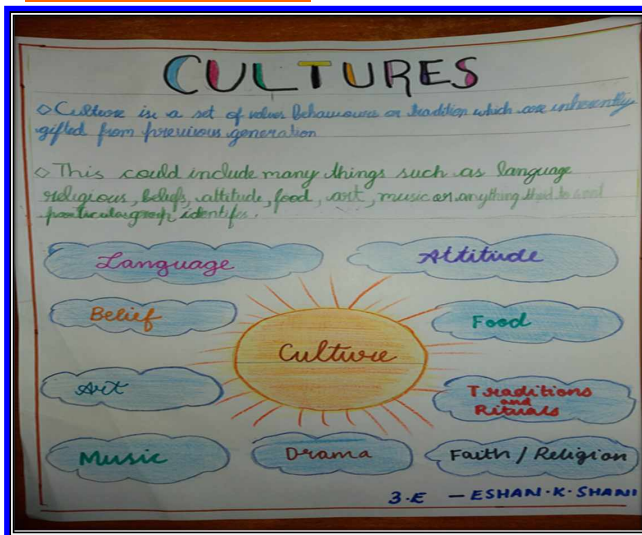 CULTURES
◇ Culture is a set of values behaviours or tradition which are inherently
gifted from previous generation
◇ This could include many things such as language
religious, beliefs, attitude, food, art, music or anything that to and
particular group identifes.
Language
Attitude
Belief
Food
Culture
Art
Traditions
and
Rituals
Music
Drama
Faith / Religion
3.E — ESHAN.K.SHANI